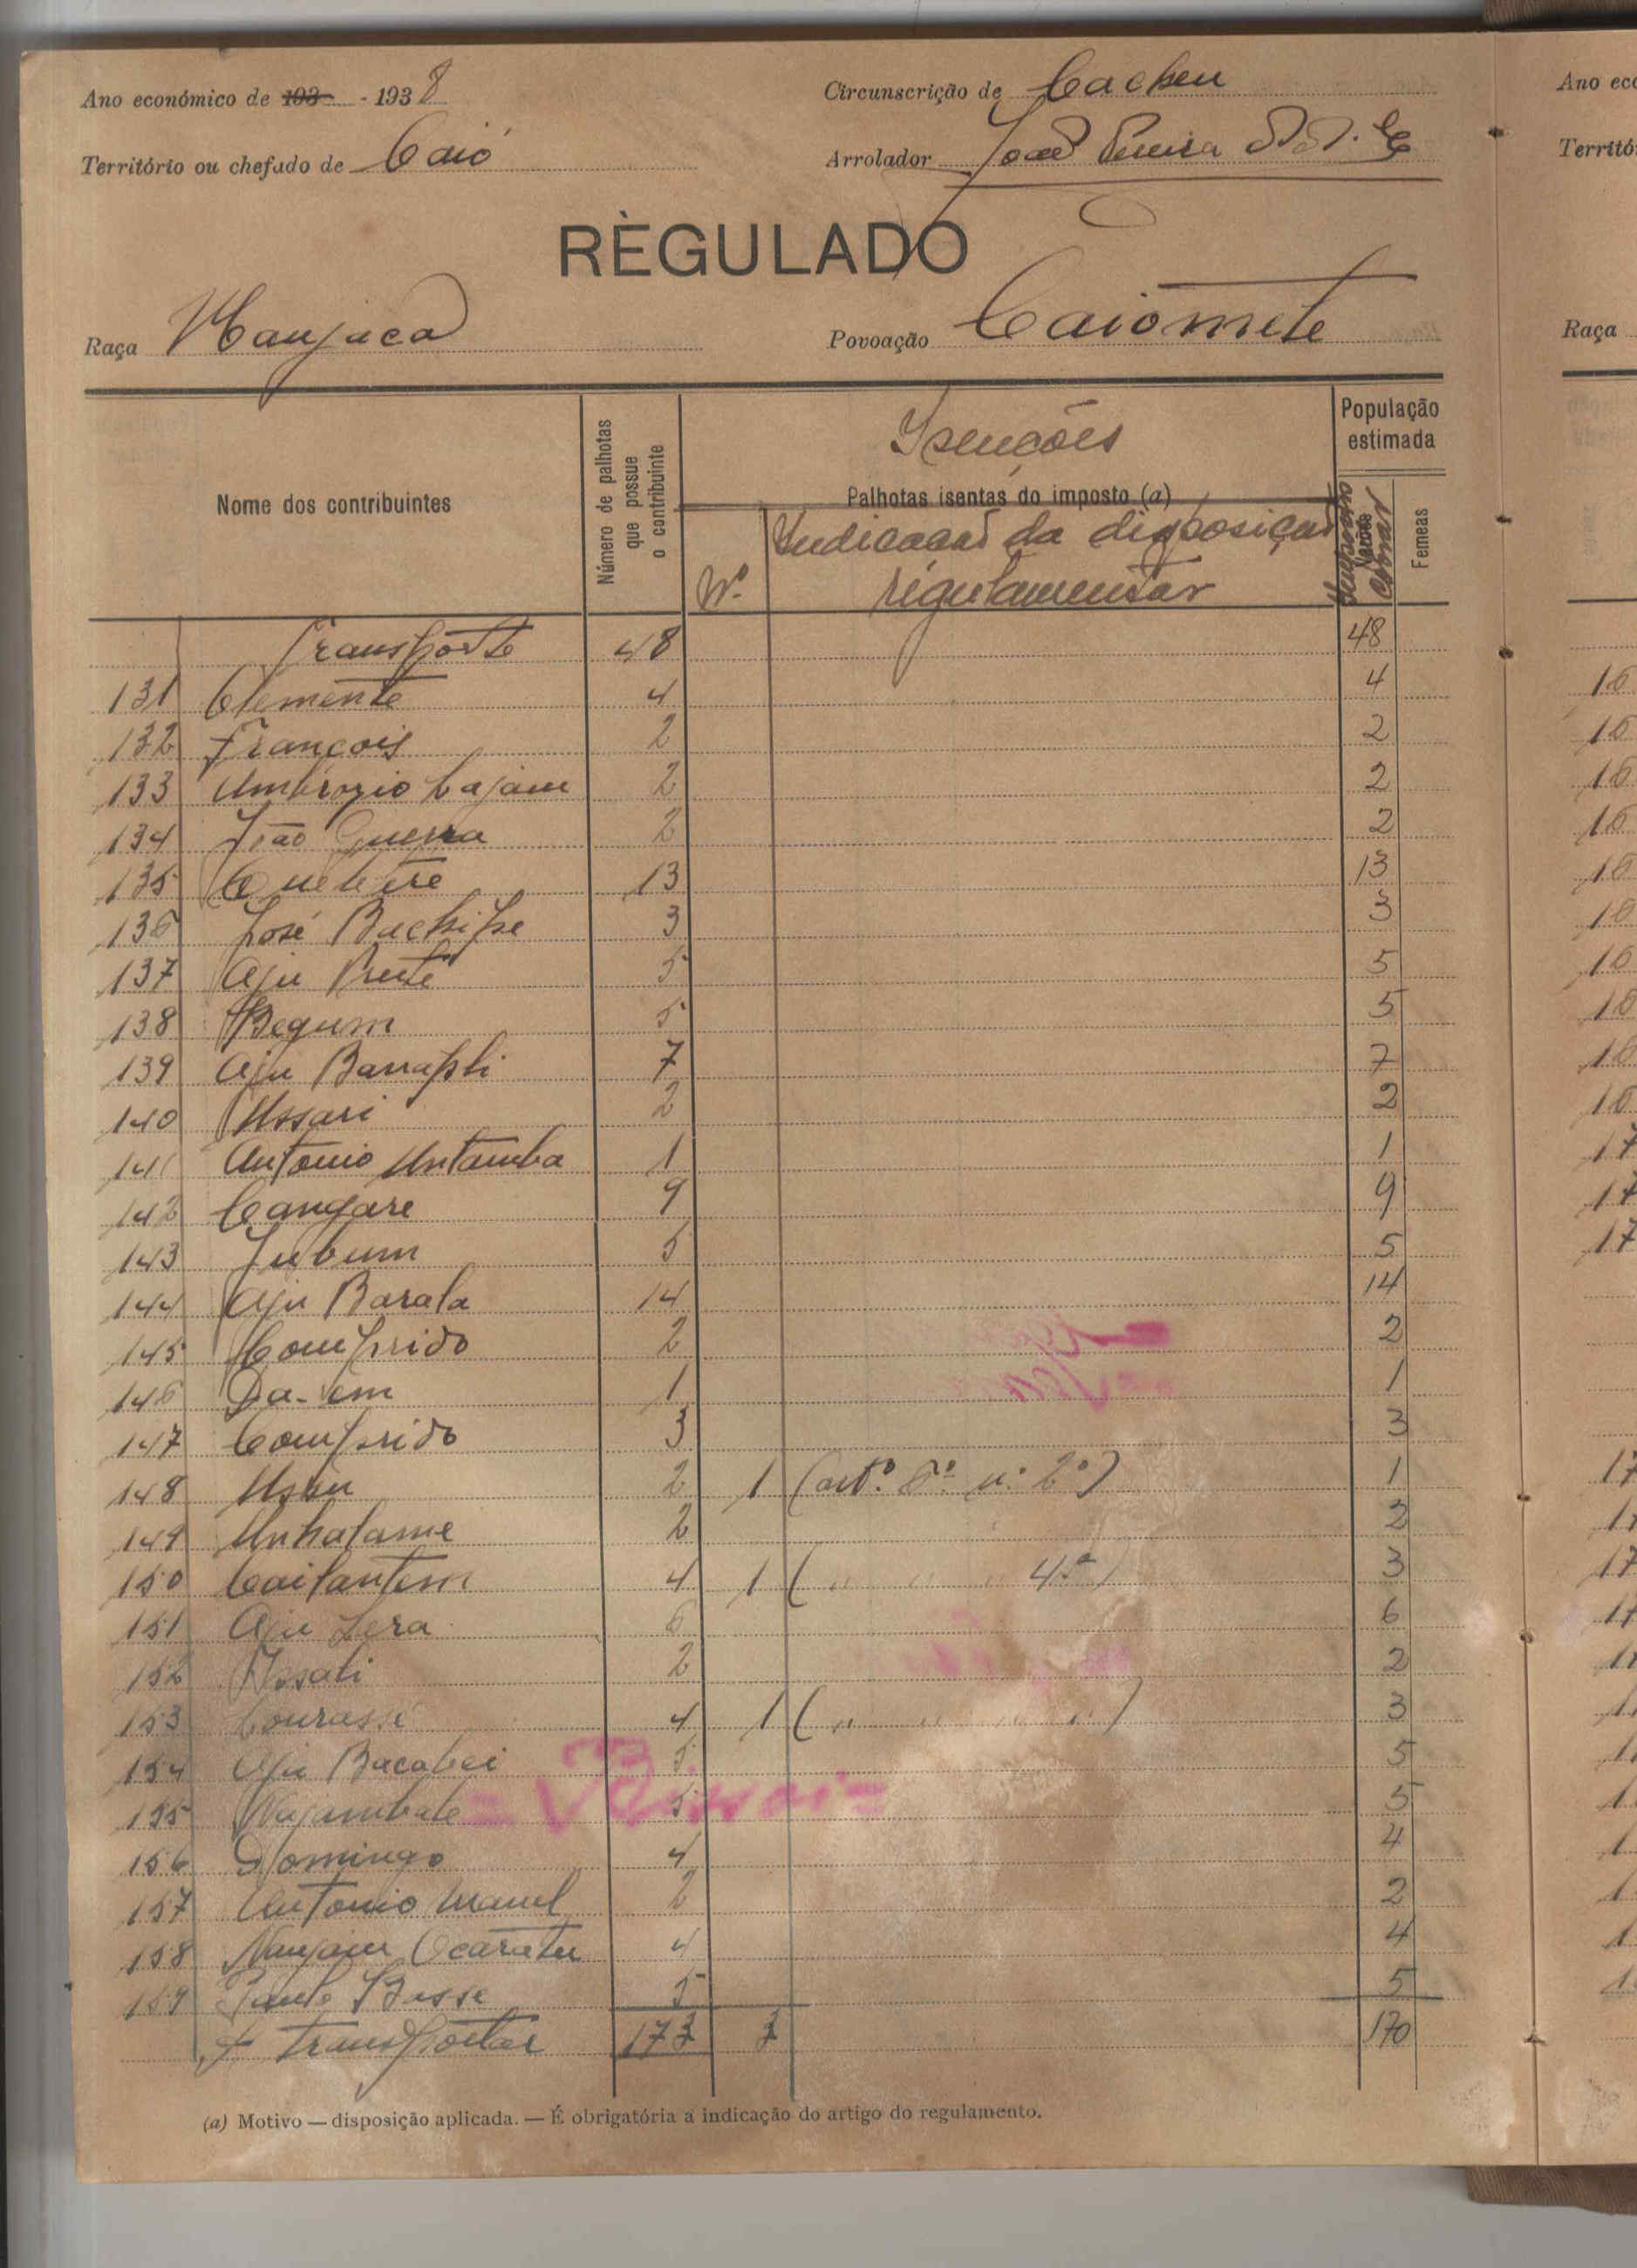 Ano económico de 193 - 1938
Circunscrição de Cacheu
Território ou chefado de Caió
Arrolador João Pereira
REGULADO
Raça Manjaca
Povoação Caiomete
Nome dos contribuintes
Número de palhotas que possue o contribuinte
Isenções
Palhotas isentas do imposto (a)
Nº
Indicacaó da disposiçaó
regulamentar
População estimada
Femeas
Transporte 48 48
131 Clemente 4 4
132 François 2 2
133 Ambrozio Cajam 2 2
134 João Guerra 2 2
135 13 13
136 José Bachipe 3 3
137 Aju Prete 5 5
138 Begum 5 5
139 Aju Barrapli 7 7
140 Ussari 2 2
141 Antonio Untamba 1 1
142 Cangare 9 9
143 Jubum 5 5
144 Aju Barala 14 14
145 Comprido 2 2
146 Da-em 1 1
147 Comprido 3 3
148 2 1 (artº. 6º nº 2º) 1
149 Unhatame 2 2
150 Caitantem 4 1 ( " " " 4º ) 3
151 Aju Lera 6 6
152 Issali 2 2
153 Courassi 4 1 ( " " " " ) 3
154 Aju Bacabei 5 5
155 5 5
156 Domingo 4 4
157 Antonio Manel 2 2
158 Nanjam Ocaratu 4 4
159 Basse 5 5
A transportar 173 3 170
(a) Motivo — disposição aplicada. — É obrigatória a indicação do artigo do regulamento.